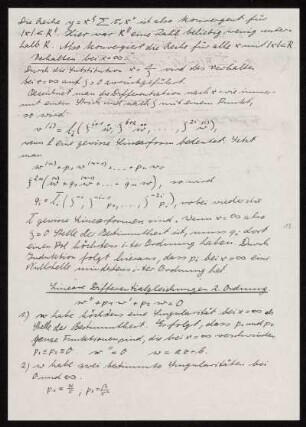 Die Reihe y = x^ξ Σ cᵢ xⁱ ist also konvergent für
|x| < R'. Hier war R' eine Zahl beliebig wenig unter-
halb R. Also konvergiert die Reihe für alle x mit |x| < R
Verhalten bei x = ∞.
Durch die Substitution x = 1/ξ wird das Verhalten
bei x = ∞ auf ξ = 0 zurückgeführt.
Bezeichnet man die Differentiation nach x wie immer
mit einem Strich und nach ξ mit einem Punkt,
so wird
worin l eine gewisse Linearform bedeutet. Setzt
man
so wird
wobei wieder die
l gewisse Linearformen sind. Wenn x = ∞ also
ξ = 0 Stelle der Bestimmtheit ist, muss qᵢ dort
einen Pol höchstens i-ter Ordnung haben. Durch
Induktion folgt hieraus, dass pᵢ bei x = ∞ eine
Nullstelle mindestens i-ter Ordnung hat
Lineare Differentialgleichungen 2. Ordnung
w'' + p₁ w' + p₂ w = 0
1) w habe höchstens eine Singularität bei x = ∞ als
Stelle der Bestimmtheit. So folgt, dass p₁ und p₂
ganze Funktionen sind, die bei x = ∞ verschwinden
p₁ = p₂ = 0 w'' = 0 w = ax + b.
2) w habe zwei bestimmte Singularitäten bei
0 und ∞.